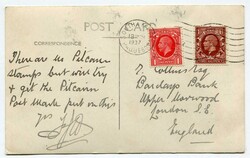 POST CARD
CORRESPONDENCE
There are no Pitcairn
stamps but will try
& get the Pitcairn
Post Mark put on this
T. Collins Esq
Barclays Bank
Upper Norwood
London S.E.
England